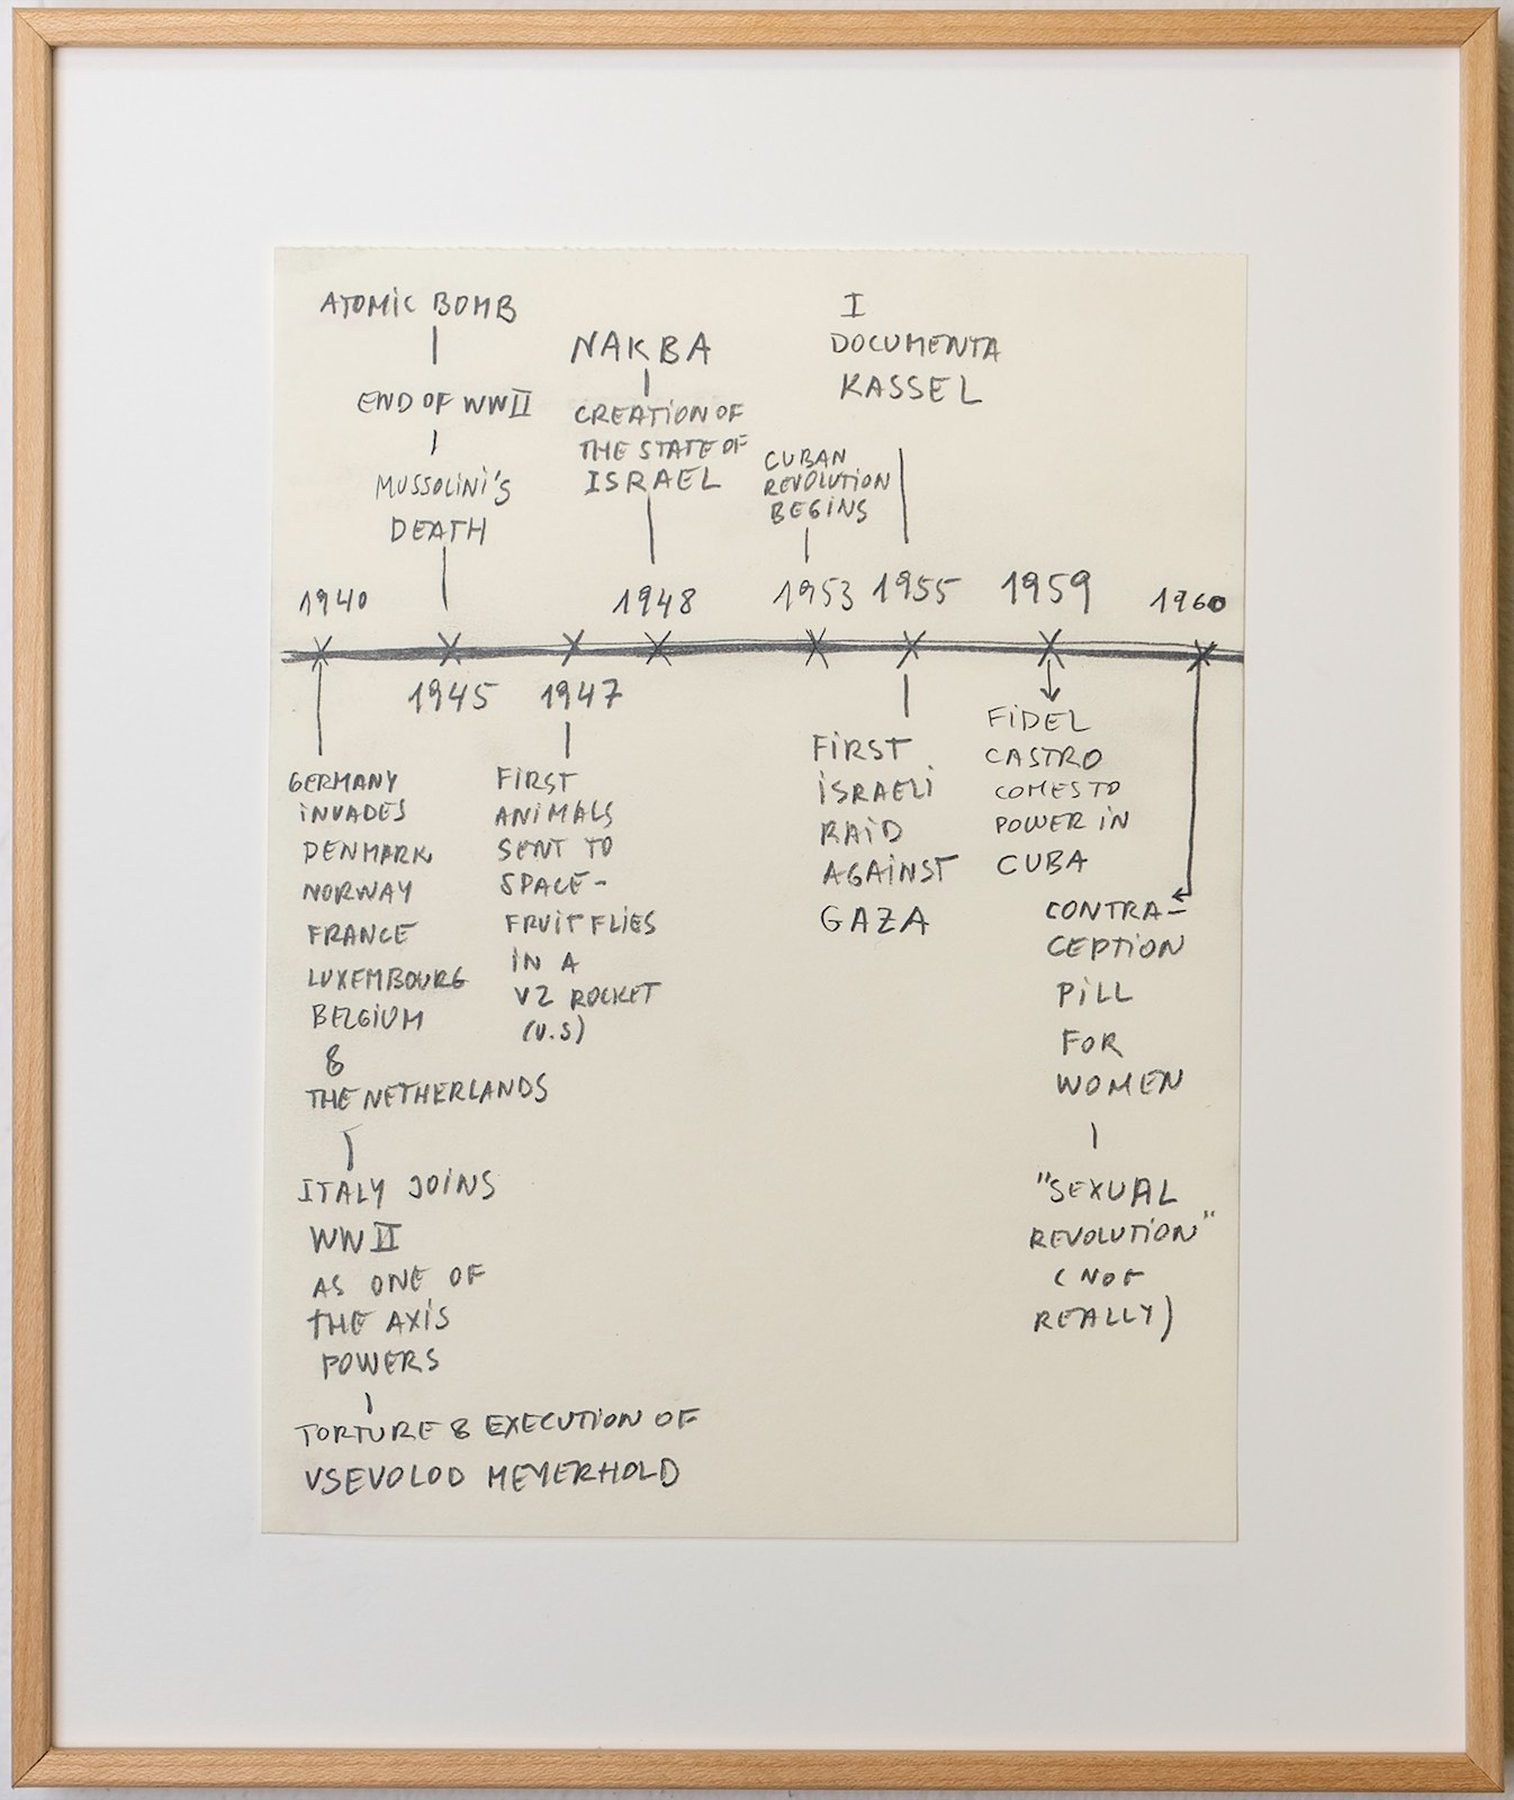 ATOMIC BOMB
END OF WWII
MUSSOLINI'S
DEATH
NAKBA
CREATION OF
THE STATE OF
ISRAEL
CUBAN
REVOLUTION
BEGINS
I
DOCUMENTA
KASSEL
1940
1948
1953
1955
1959
1960
1945
1947
GERMANY
INVADES
DENMARK
NORWAY
FRANCE
LUXEMBOURG
BELGIUM
&
THE NETHERLANDS
ITALY JOINS
WWII
AS ONE OF
THE AXIS
POWERS
TORTURE & EXECUTION OF
VSEVOLOD MEYERHOLD
FIRST
ANIMALS
SENT TO
SPACE-
FRUIT FLIES
IN A
V2 ROCKET
(U.S)
FIRST
ISRAELI
RAID
AGAINST
GAZA
FIDEL
CASTRO
COMES TO
POWER IN
CUBA
CONTRA-
CEPTION
PILL
FOR
WOMEN
"SEXUAL
REVOLUTION"
(NOT
REALLY)